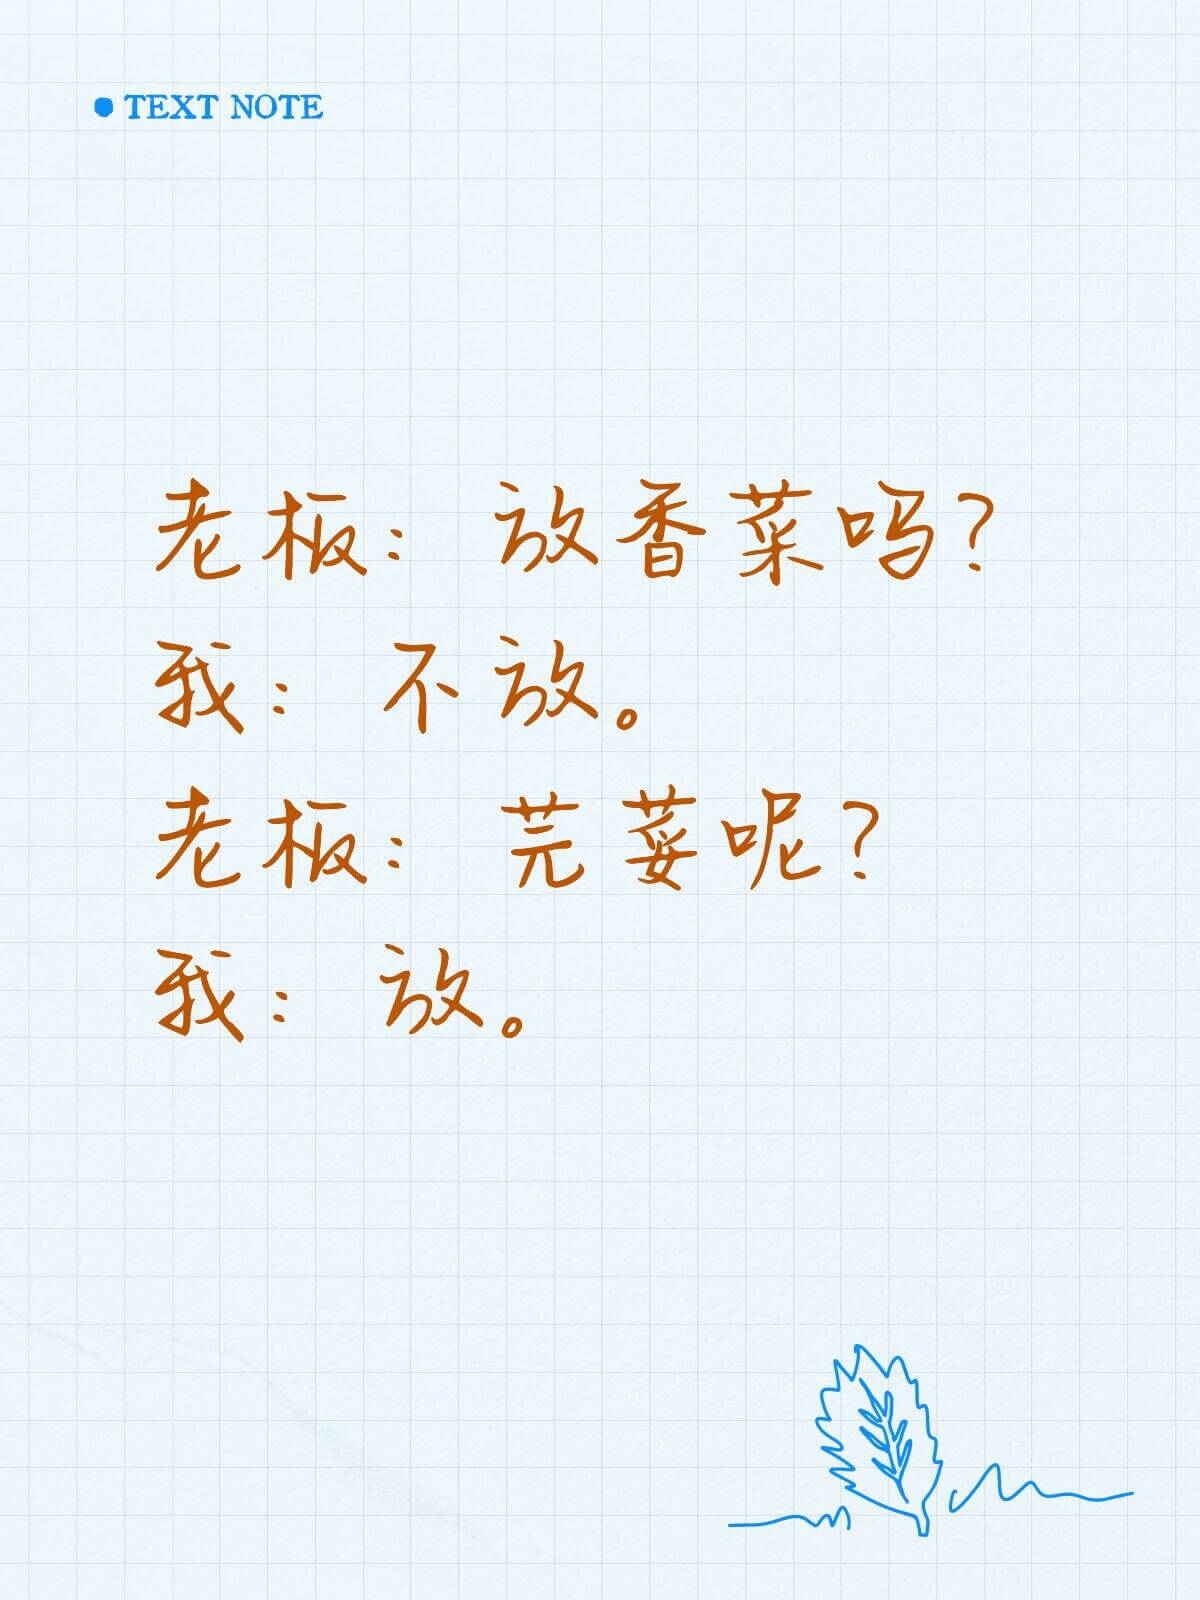 TEXT NOTE
老板：放香菜吗？
我：不放。
老板：芫荽呢？
我：放。